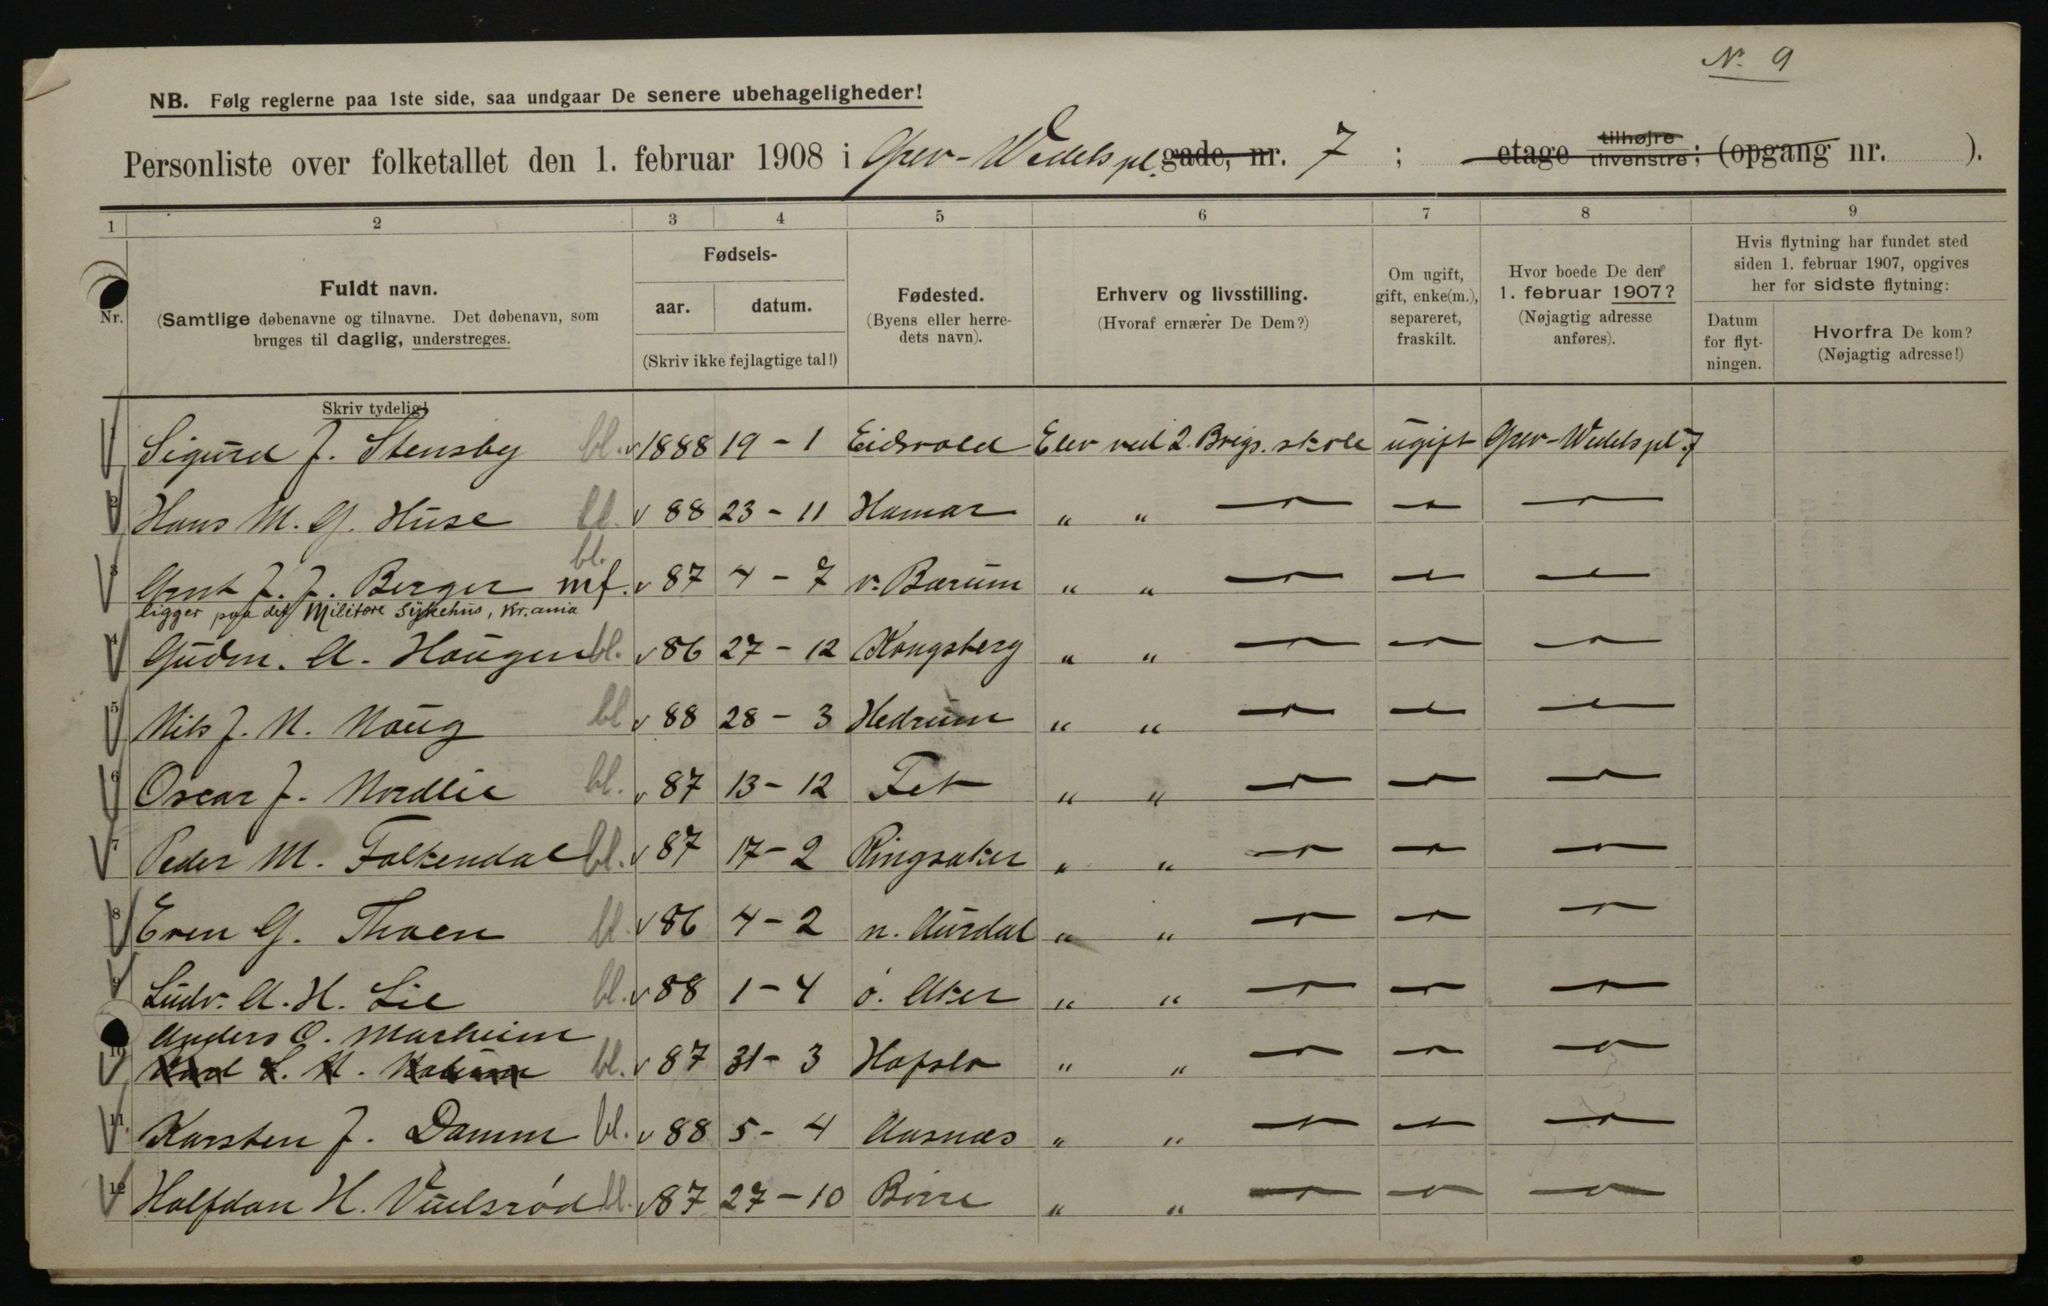 Nr. 9
NB. Følg reglerne paa 1ste side, saa undgaar De senere ubehageligheder!
Personliste over folketallet den 1. februar 1908 i Grev-Wedels pl. gade, nr. 7 ; etage tilhøjre tilvenstre; (opgang nr. ).
1 2 3 4 5 6 7 8 9
Nr.
Fuldt navn.
(Samtlige døbenavne og tilnavne. Det døbenavn, som
bruges til daglig, understreges.
Skriv tydelig!
Fødsels-
aar. datum.
(Skriv ikke fejlagtige tal!)
Fødested.
(Byens eller herre-
dets navn).
Erhverv og livsstilling.
(Hvoraf ernærer De Dem?)
Om ugift,
gift, enke(m.),
separeret,
fraskilt.
Hvor boede De den
1. februar 1907?
(Nøjagtig adresse
anføres).
Hvis flytning har fundet sted
siden 1. februar 1907, opgives
her for sidste flytning:
Datum
for flyt-
ningen.
Hvorfra De kom?
(Nøjagtig adresse!)
Sigurd J. Stensby bl. v 1888 19 - 1 Eidsvold Elev ved 2. Brigs. skole ugift Grev-Wedels pl. 7
2 Hans M. G. Huse bl. v 88 23 - 11 Hamar " " — — —
bl.
3 Arnt J. J. Berger mf. v 87 4 - 7 v. Bærum " " — — —
ligger paa det Militære Sykehus, Kr.ania
4 Gudm. A. Haugen bl. v 86 27 - 12 Kongsberg " " — — —
5 Nils J. N. Haug bl v 88 28 - 3 Hedrum " " — — —
6 Oscar J. Nordlie bl. v 87 13 - 12 Fet " " — — —
7 Peder M. Falkendal bl. v 87 17 - 2 Ringsaker " " — — —
8 Even G. Thoen bl. v 86 4 - 2 n. Aurdal " " — — —
9 Ludv. A. H. Lie bl. v 88 1 - 4 ö. Aker " " — — —
Anders O. Marheim
10 bl. v 87 31 - 3 Hafslo " " — — —
11 Karsten J. Damm bl. v 88 5 - 4 Aasnæs " " — — —
12 Halfdan H. Vuelsrød bl. v 87 27 - 10 Borre " " — — —